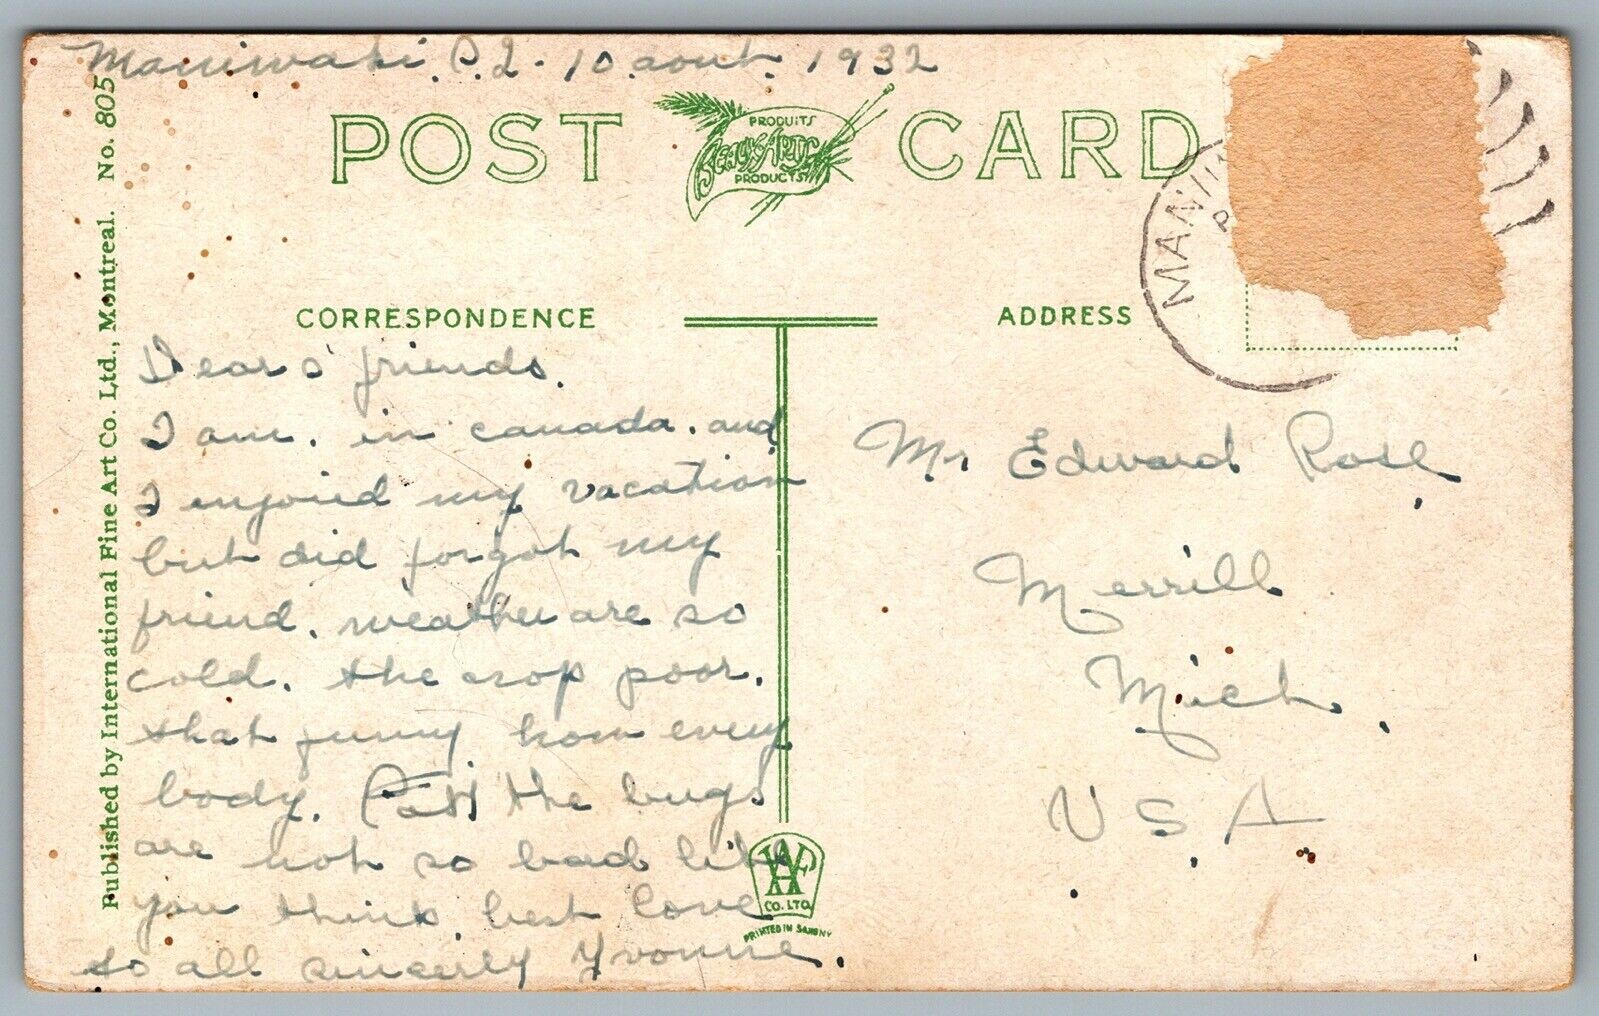 Maniwaki. P.Q. 10 aout. 1932
POST CARD
PRODUITS
BEAUX ARTS
PRODUCTS
MANIW
P
CORRESPONDENCE
ADDRESS
Dears friends.
I am. in canada. and
I enjoied my vacation
but did forgot my
friend. weather are so
cold. the crop poor.
that funny how every
body. the bugs
are not so bad like
you think. best love
to all sincerly Yvonne.
Mr Edward Rose,
Merrill
Mich.,
U.S.A.
Published by International Fine Art Co. Ltd., Montreal. No. 805
CO. LTD.
PRINTED IN SAXONY